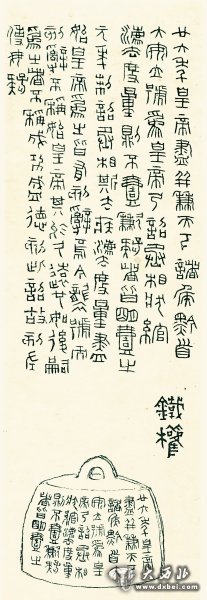 廿六年皇帝盡并兼天下諸侯黔首
大安立號為皇帝乃詔丞相狀綰
灋度量則不壹歉疑者皆明壹之
元年制詔丞相斯去疾灋度量盡
始皇帝為之皆有刻辭焉今襲號而
刻辭不稱始皇帝其於久遠也如後嗣
為之者不稱成功盛德刻此詔故刻左
使毋疑
鐵權
廿六年皇帝
盡并兼天下
諸侯黔首大
安立號為皇
帝乃詔丞相
狀綰灋度量
則不壹歉疑
者皆明壹之
大西北
www.dxbei.com